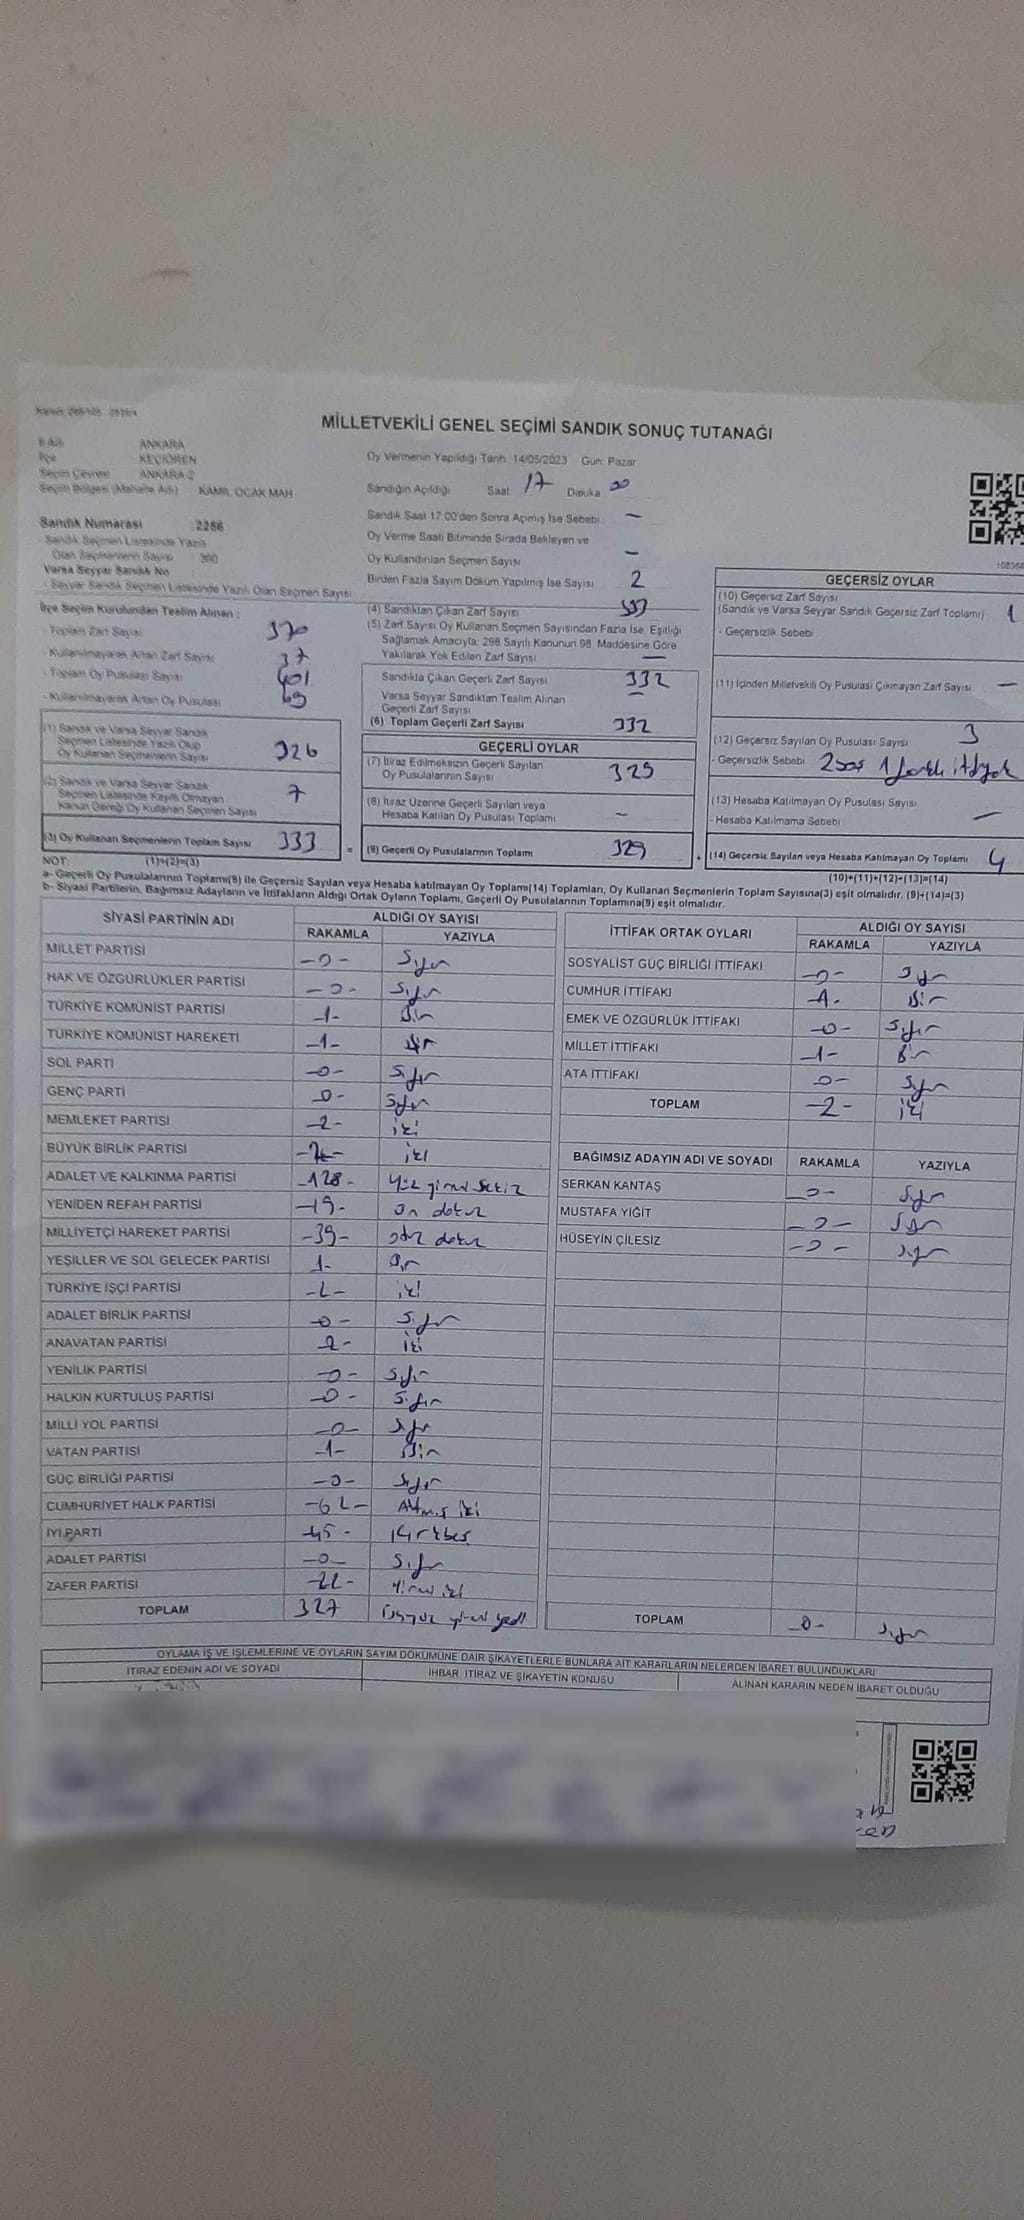 MİLLETVEKİLİ GENEL SEÇİMİ SANDIK SONUÇ TUTANAĞI
İl Adı ANKARA
İlçe KEÇİÖREN
Seçim Çevresi ANKARA-2
Seçim Bölgesi (Mahalle Adı) KAMİL OCAK MAH
Oy Vermenin Yapıldığı Tarih 14/05/2023 Gün: Pazar
Sandığın Açıldığı Saat 17 Dakika 00
Sandık Saat 17:00'den Sonra Açılmış İse Sebebi: —
Oy Verme Saati Bitiminde Sırada Bekleyen ve
Oy Kullandırılan Seçmen Sayısı —
Birden Fazla Sayım Döküm Yapılmış İse Sayısı 2
Sandık Numarası 2286
- Sandık Seçmen Listesinde Yazılı
Olan Seçmenlerin Sayısı 360
Varsa Seyyar Sandık No
- Seyyar Sandık Seçmen Listesinde Yazılı Olan Seçmen Sayısı
İlçe Seçim Kurulundan Teslim Alınan :
- Toplam Zarf Sayısı 370
- Kullanılmayarak Artan Zarf Sayısı 37
- Toplam Oy Pusulası Sayısı 401
- Kullanılmayarak Artan Oy Pusulası 69
(1) Sandık ve Varsa Seyyar Sandık
Seçmen Listesinde Yazılı Olup
Oy Kullanan Seçmenlerin Sayısı 326
(2) Sandık ve Varsa Seyyar Sandık
Seçmen Listesinde Kayıtlı Olmayan
Kanun Gereği Oy Kullanan Seçmen Sayısı 7
(3) Oy Kullanan Seçmenlerin Toplam Sayısı 333
NOT: (1)+(2)=(3)
(4) Sandıktan Çıkan Zarf Sayısı 333
(5) Zarf Sayısı Oy Kullanan Seçmen Sayısından Fazla İse, Eşitliği
Sağlamak Amacıyla; 298 Sayılı Kanunun 98. Maddesine Göre
Yakılarak Yok Edilen Zarf Sayısı —
Sandıkta Çıkan Geçerli Zarf Sayısı 332
Varsa Seyyar Sandıktan Teslim Alınan
Geçerli Zarf Sayısı —
(6) Toplam Geçerli Zarf Sayısı 332
GEÇERLİ OYLAR
(7) İtiraz Edilmeksizin Geçerli Sayılan
Oy Pusulalarının Sayısı 329
(8) İtiraz Üzerine Geçerli Sayılan veya
Hesaba Katılan Oy Pusulası Toplamı —
= (9) Geçerli Oy Pusulalarının Toplamı 329
GEÇERSİZ OYLAR
(10) Geçersiz Zarf Sayısı
(Sandık ve Varsa Seyyar Sandık Geçersiz Zarf Toplamı) 1
- Geçersizlik Sebebi
(11) İçinden Milletvekili Oy Pusulası Çıkmayan Zarf Sayısı —
(12) Geçersiz Sayılan Oy Pusulası Sayısı 3
- Geçersizlik Sebebi
(13) Hesaba Katılmayan Oy Pusulası Sayısı
- Hesaba Katılmama Sebebi —
+ (14) Geçersiz Sayılan veya Hesaba Katılmayan Oy Toplamı 4
(10)+(11)+(12)+(13)=(14)
a- Geçerli Oy Pusulalarının Toplamı(9) ile Geçersiz Sayılan veya Hesaba katılmayan Oy Toplamı(14) Toplamları, Oy Kullanan Seçmenlerin Toplam Sayısına(3) eşit olmalıdır. (9)+(14)=(3)
b- Siyasi Partilerin, Bağımsız Adayların ve İttifakların Aldığı Ortak Oyların Toplamı, Geçerli Oy Pusulalarının Toplamına(9) eşit olmalıdır.
SİYASİ PARTİNİN ADI ALDIĞI OY SAYISI
RAKAMLA YAZIYLA
MİLLET PARTİSİ -0- Sıfır
HAK VE ÖZGÜRLÜKLER PARTİSİ -0- Sıfır
TÜRKİYE KOMÜNİST PARTİSİ -1- Bir
TÜRKİYE KOMÜNİST HAREKETİ -1- Bir
SOL PARTİ -0- Sıfır
GENÇ PARTİ -0- Sıfır
MEMLEKET PARTİSİ -2- iki
BÜYÜK BİRLİK PARTİSİ -2- iki
ADALET VE KALKINMA PARTİSİ -128- Yüz yirmi sekiz
YENİDEN REFAH PARTİSİ -19- on dokuz
MİLLİYETÇİ HAREKET PARTİSİ -39- otuz dokuz
YEŞİLLER VE SOL GELECEK PARTİSİ 1- Bir
TÜRKİYE İŞÇİ PARTİSİ -2- iki
ADALET BİRLİK PARTİSİ -0- Sıfır
ANAVATAN PARTİSİ 2- iki
YENİLİK PARTİSİ -0- Sıfır
HALKIN KURTULUŞ PARTİSİ -0- Sıfır
MİLLİ YOL PARTİSİ -0- Sıfır
VATAN PARTİSİ -1- Bir
GÜÇ BİRLİĞİ PARTİSİ -0- Sıfır
CUMHURİYET HALK PARTİSİ -62- Altmış iki
İYİ PARTİ -45- Kırkbeş
ADALET PARTİSİ -0- Sıfır
ZAFER PARTİSİ -22- Yirmi iki
TOPLAM 327 Üçyüz yirmi yedi
İTTİFAK ORTAK OYLARI ALDIĞI OY SAYISI
RAKAMLA YAZIYLA
SOSYALİST GÜÇ BİRLİĞİ İTTİFAKI -0- Sıfır
CUMHUR İTTİFAKI -1- Bir
EMEK VE ÖZGÜRLÜK İTTİFAKI -0- Sıfır
MİLLET İTTİFAKI -1- Bir
ATA İTTİFAKI 0- Sıfır
TOPLAM -2- iki
BAĞIMSIZ ADAYIN ADI VE SOYADI RAKAMLA YAZIYLA
SERKAN KANTAŞ -0- Sıfır
MUSTAFA YİĞİT -0- Sıfır
HÜSEYİN ÇİLESİZ -0- Sıfır
TOPLAM -0- Sıfır
OYLAMA İŞ VE İŞLEMLERİNE VE OYLARIN SAYIM DÖKÜMÜNE DAİR ŞİKAYETLERLE BUNLARA AİT KARARLARIN NELERDEN İBARET BULUNDUKLARI
İTİRAZ EDENİN ADI VE SOYADI İHBAR, İTİRAZ VE ŞİKAYETİN KONUSU ALINAN KARARIN NEDEN İBARET OLDUĞU